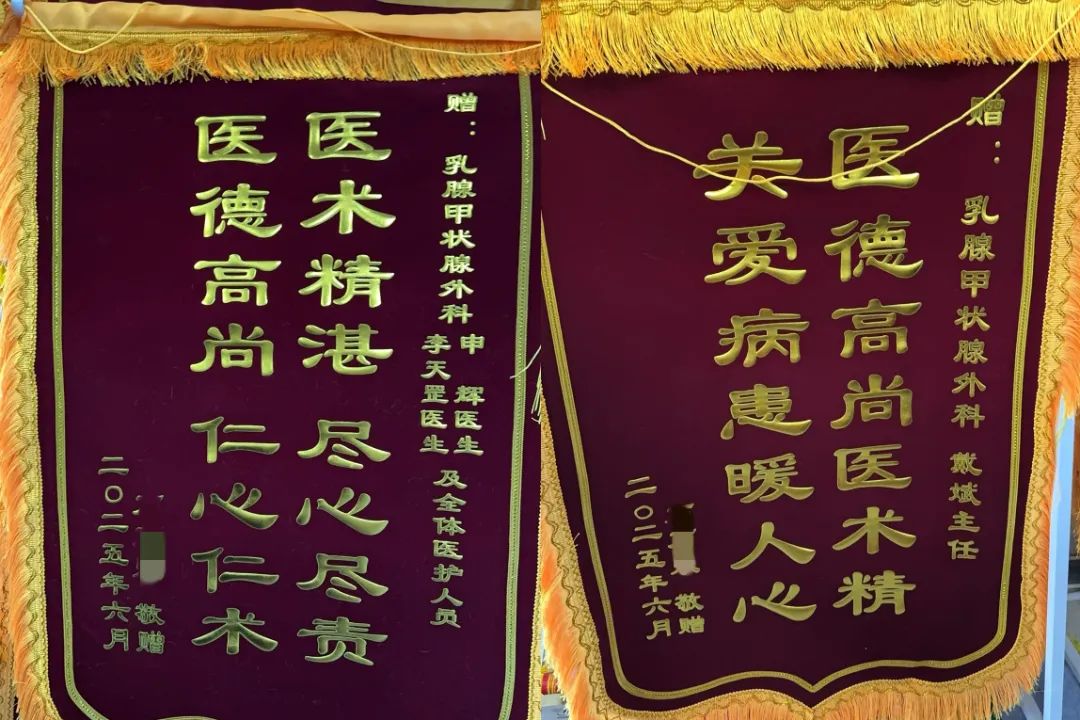 赠：乳腺甲状腺外科 申辉医生
李天罡医生
及全体医护人员
医术精湛 尽心尽责
医德高尚 仁心仁术
敬赠
二〇二五年六月
赠：乳腺甲状腺外科 戴斌主任
医德高尚医术精
关爱病患暖人心
敬赠
二〇二五年六月